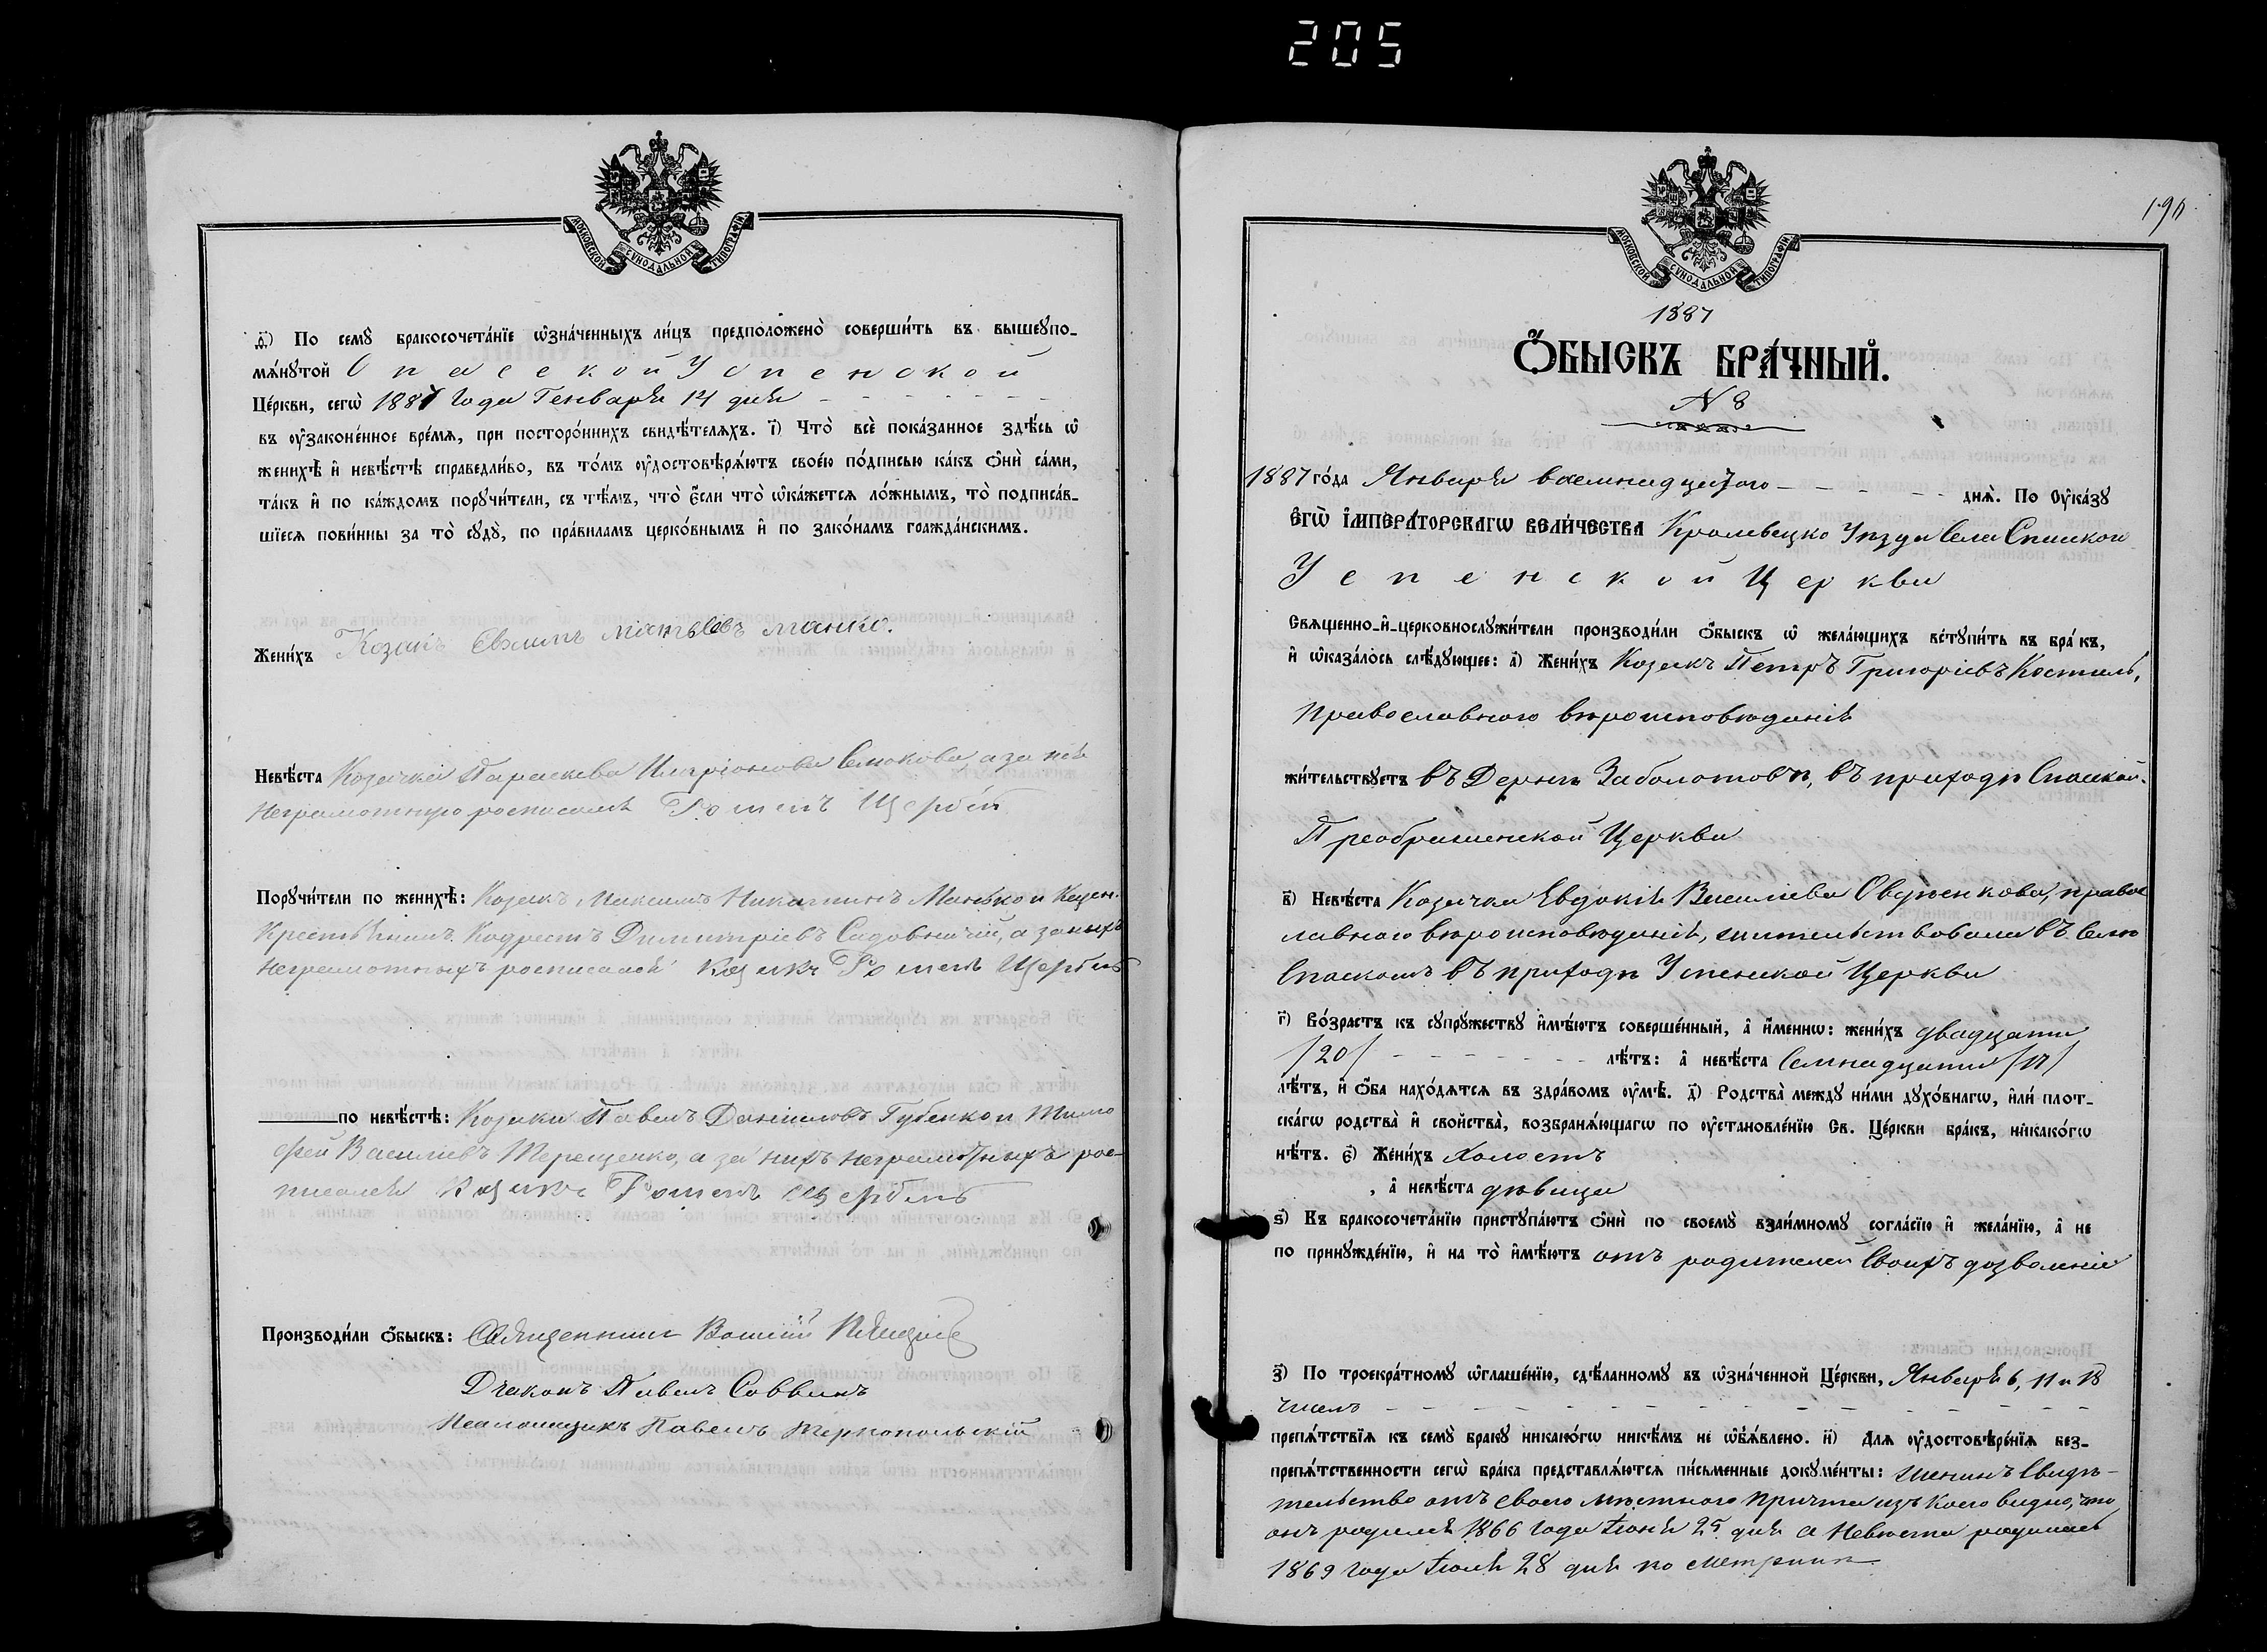 205
МОСКОВСКОЙ СѴНОДАЛЬНОЙ ТИПОГРАФІИ
д҃і) По семꙋ̀ бракосочета́нїе ѡ҆зна́ченныхъ ли́цъ предположено̀ соверши́ть въ вышеꙋпо-
мѧ́нꙋтой Спасской Успенской
Це́ркви, сегѡ̀ 1887 года Генваря 14 дня
въ ᲂу҆законе́нное вре́мѧ, при посторо́ннихъ свидѣ́телѧхъ. і҃) Что̀ всѐ пока́занное здѣ́сь ѡ҆
женихѣ̀ и҆ невѣ́стѣ справедли́во, въ то́мъ ᲂу҆достовѣрѧ́ютъ свое́ю по́дписью ка́къ ѻ҆нѝ са́ми,
та́къ и҆ по ка́ждомъ порꙋчи́тели, съ тѣ́мъ, что̀ є҆́сли что̀ ѡ҆ка́жетсѧ ло́жнымъ, то̀ подписа́в-
шїесѧ пови́нны за то̀ сꙋдꙋ̀, по пра́виламъ церко́внымъ и҆ по зако́намъ гражда́нскимъ.
Жени́хъ Козакъ Евѳимъ Матвеевъ Манко.
Невѣ́ста Козачка Параскева Иларіонова Сенокова, а за нея
неграмотную росписался Роман Щерба
Порꙋчи́тели по женихѣ̀: Козакъ Никитинъ Манько и Казен.
Крестьянинъ Кодратъ Димитріевъ Садовничій, а за нихъ
неграмотныхъ росписался козакъ Роман Щерба
по невѣ́стѣ: Козаки Павелъ Даніиловъ Губенко и Тимо
фей Василіевъ Терещенко, а за нихъ неграмотныхъ рос-
писался козакъ Роман Щерба
Производи́ли ѻ҆́быскъ: Священникъ
Діаконъ Павелъ Саввинъ
Псаломщикъ Павелъ Тернопольскій
МОСКОВСКОЙ СѴНОДАЛЬНОЙ ТИПОГРАФІИ
1887
Ѻ҆́БЫСКЪ БРА́ЧНЫЙ.
N 8
1887 го́да Января восемнадцатого днѧ̀. По ᲂу҆ка́зꙋ
Є҆ГѠ̀ І҆МПЕРА́ТОРСКАГѠ ВЕЛИ́ЧЕСТВА Кролевецко Уѣзда Села Спаскои
Успенской Церкви
Свѧщенно-и҆-церковнослꙋжи́тели производи́ли ѻ҆́быскъ ѡ҆ жела́ющихъ встꙋпи́ть въ бра́къ,
и҆ ѡ҆каза́лось слѣ́дꙋющее: а҃) Жени́хъ Козакъ Петръ Григоріевъ Костиль,
Православного вѣроисповѣданія
жи́тельствꙋетъ въ Дерѣнѣ Заболотовѣ, въ приходѣ Спаской-
Преображенской Церкви
в҃) Невѣ́ста Козачка Евдокія Василіева Овдѣенкова, правос
лавного вѣроисповѣданія, жительствовала въ Селѣ
Спаскомъ въ приходѣ Успенской Церкви
г҃) Во́зрастъ къ сꙋпрꙋ́жествꙋ и҆мѣ́ютъ соверше́нный, а҆ и҆́меннѡ: жени́хъ двадцати
/20/ лѣ́тъ: а҆ невѣ́ста Семнадцати /17/
лѣ́тъ, и҆ ѻ҆́ба нахо́дѧтсѧ въ здра́вомъ ᲂу҆мѣ̀. д҃) Родства̀ междꙋ ни́ми дꙋхо́внагѡ, и҆лѝ плот-
ска́гѡ родства̀ и҆ сво́йства̀, возбранѧ́ющагѡ по ᲂу҆становле́нїю Св. Це́ркви бра́къ, никако́гѡ
нѣ́тъ. є҃) Жени́хъ холостъ
, а҆ невѣ́ста дѣвица
ѕ҃) Къ бракосочета́нїю пристꙋпа́ютъ ѻ҆нѝ по своемꙋ̀ взаи́мномꙋ согла́сїю и҆ жела́нїю, а҆ не
по принꙋжде́нїю, и҆ на то̀ и҆мѣ́ютъ отъ родителей своихъ дозволеніе
з҃) По троекра́тномꙋ ѡ҆глаше́нїю, сдѣ́ланномꙋ въ ѡ҆зна́ченной Це́ркви, Января 6, 11 и 18
числъ
препѧ́тствїѧ къ семꙋ̀ бракꙋ никако́гѡ никѣ́мъ не ѡ҆б̾ѧ́влено. и҃) Длѧ ᲂу҆достовѣре́нїѧ без-
препѧ́тственности сегѡ̀ бра́ка представлѧ́ютсѧ пи́сьменные докꙋме́нты: женихъ Свидѣ-
тельство отъ своего мѣстного причта изъ коего видно, что
онъ родился 1866 года Іюня 25 дня а Невѣста родилась
1869 года Іюля 28 дня по метрики